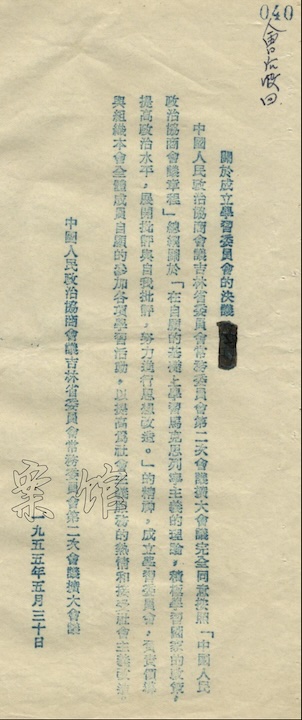 040
會后收回
關於成立學習委員會的決議
中國人民政治協商會議吉林省委員會常務委員會第二次會議擴大會議完全同意按照「中國人民
政治協商會議章程」總綱關於「在自願的基礎上學習馬克思列寧主義的理論，積極學習國家的政策，
提高政治水平，展開批評與自我批評，努力進行思想改造。」的精神，成立學習委員會，負責領導
與組織本會全體成員自願的參加各項學習活動，以提高為社會主義服務的熱情和
中國人民政治協商會議吉林省委員會常務委員會第二次會議擴大會議
一九五五年五月三十日
案館